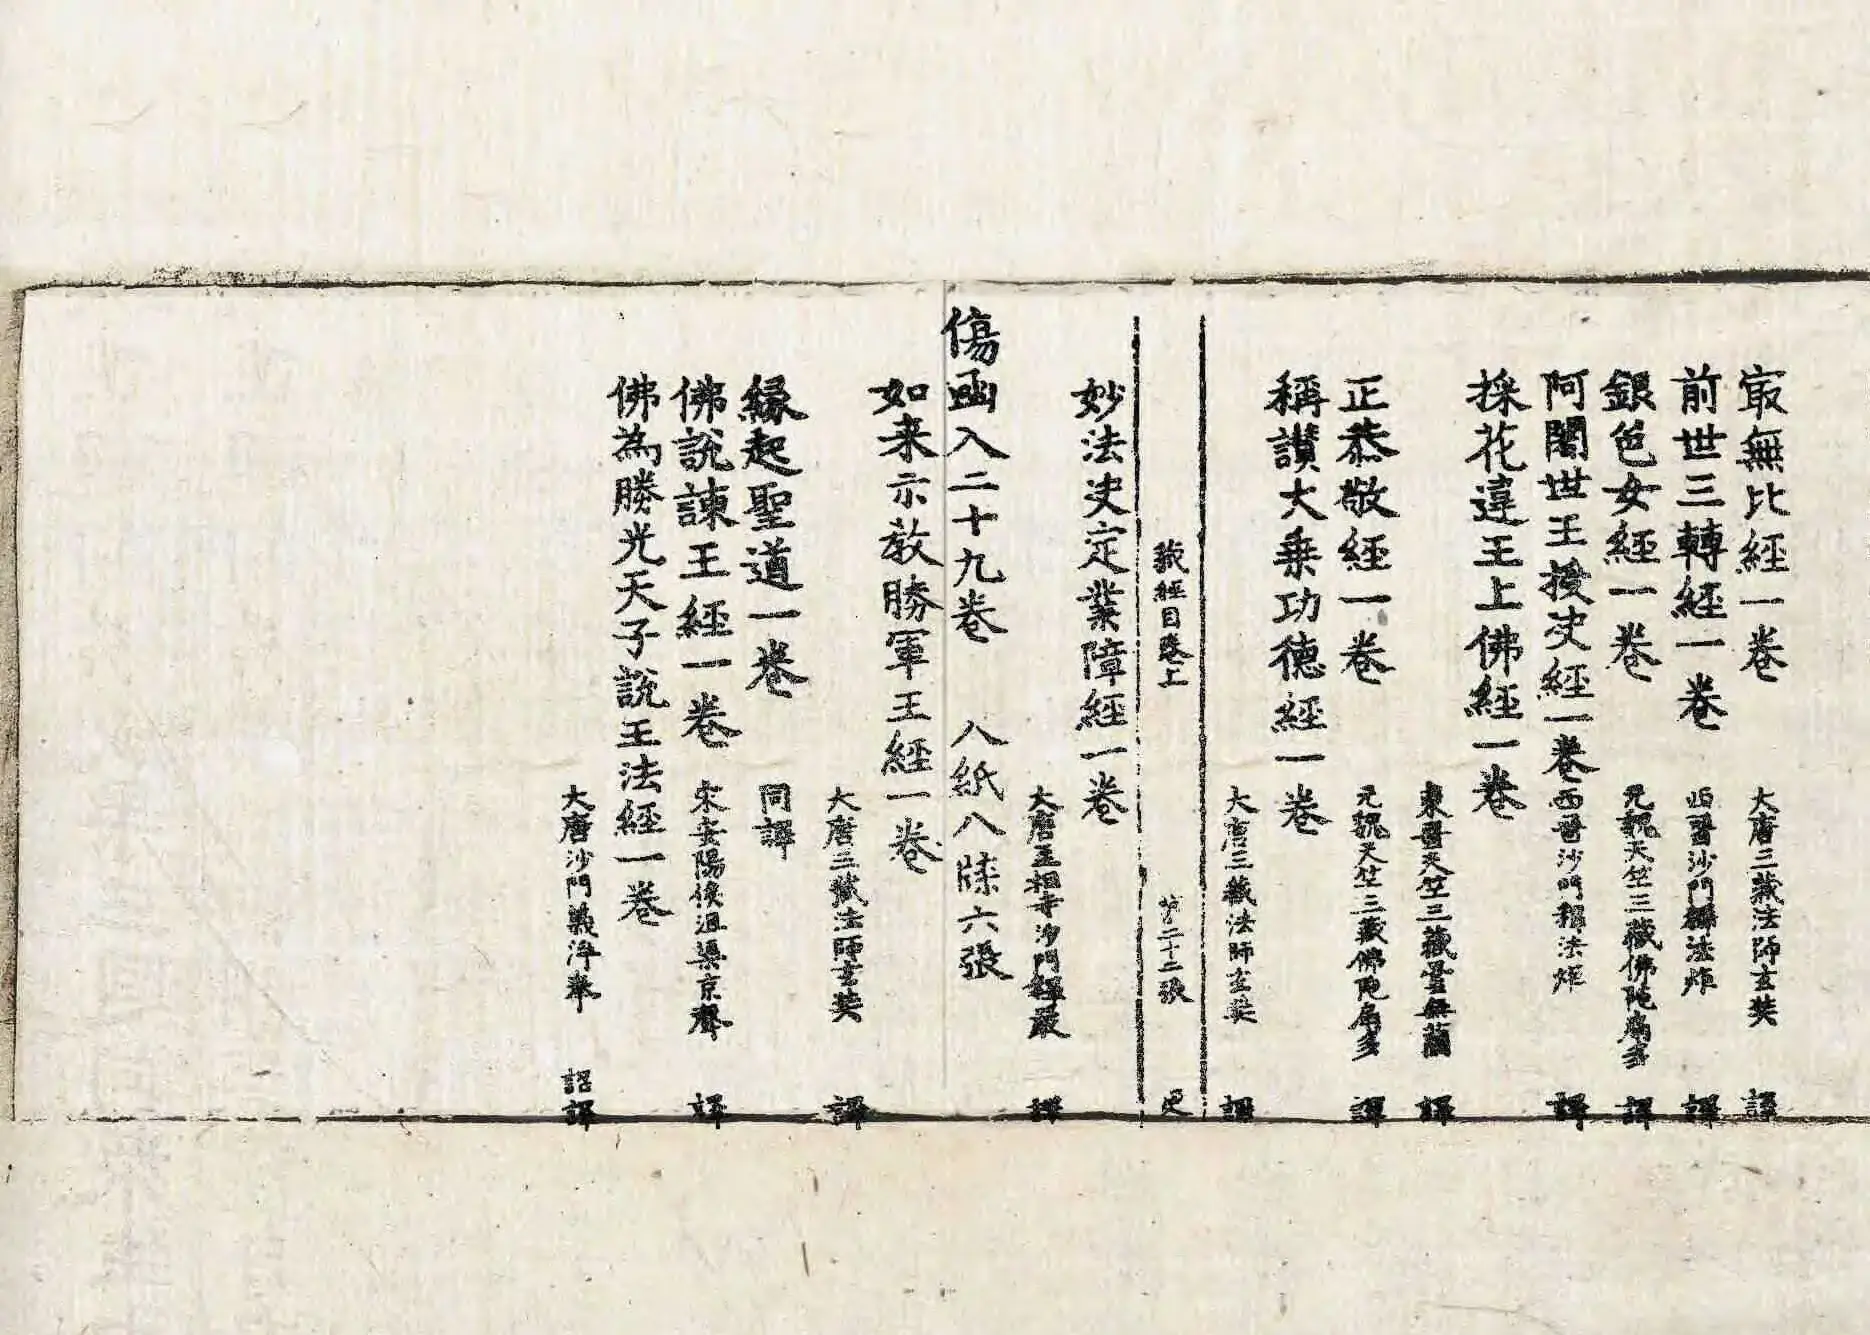 㝡無比經一卷
大唐三藏法師玄奘 譯
前世三轉經一卷
西晉沙門釋法炬 譯
銀色女經一卷
元魏天竺三藏佛陁扇多 譯
阿闍世王授决經一卷
西晉沙門釋法炬 譯
採花違王上佛經一卷
東晉天竺三藏曇無蘭 譯
正恭敬經一卷
元魏天竺三藏佛陁扇多 譯
稱讃大乗功德經一卷
大唐三藏法師玄奘 譯
藏經目卷上 第二十二張
妙法决定業障經一卷
大唐至相寺沙門釋嚴 譯
傷凾入二十九卷 八紙八牍六張
如来示教勝軍王經一卷
大唐三藏法師玄奘 譯
縁起聖道一卷
同譯
佛說諫王經一卷
宋安陽侯沮渠京聲 譯
佛為勝光天子說王法經一卷
大唐沙門義淨奉 詔譯